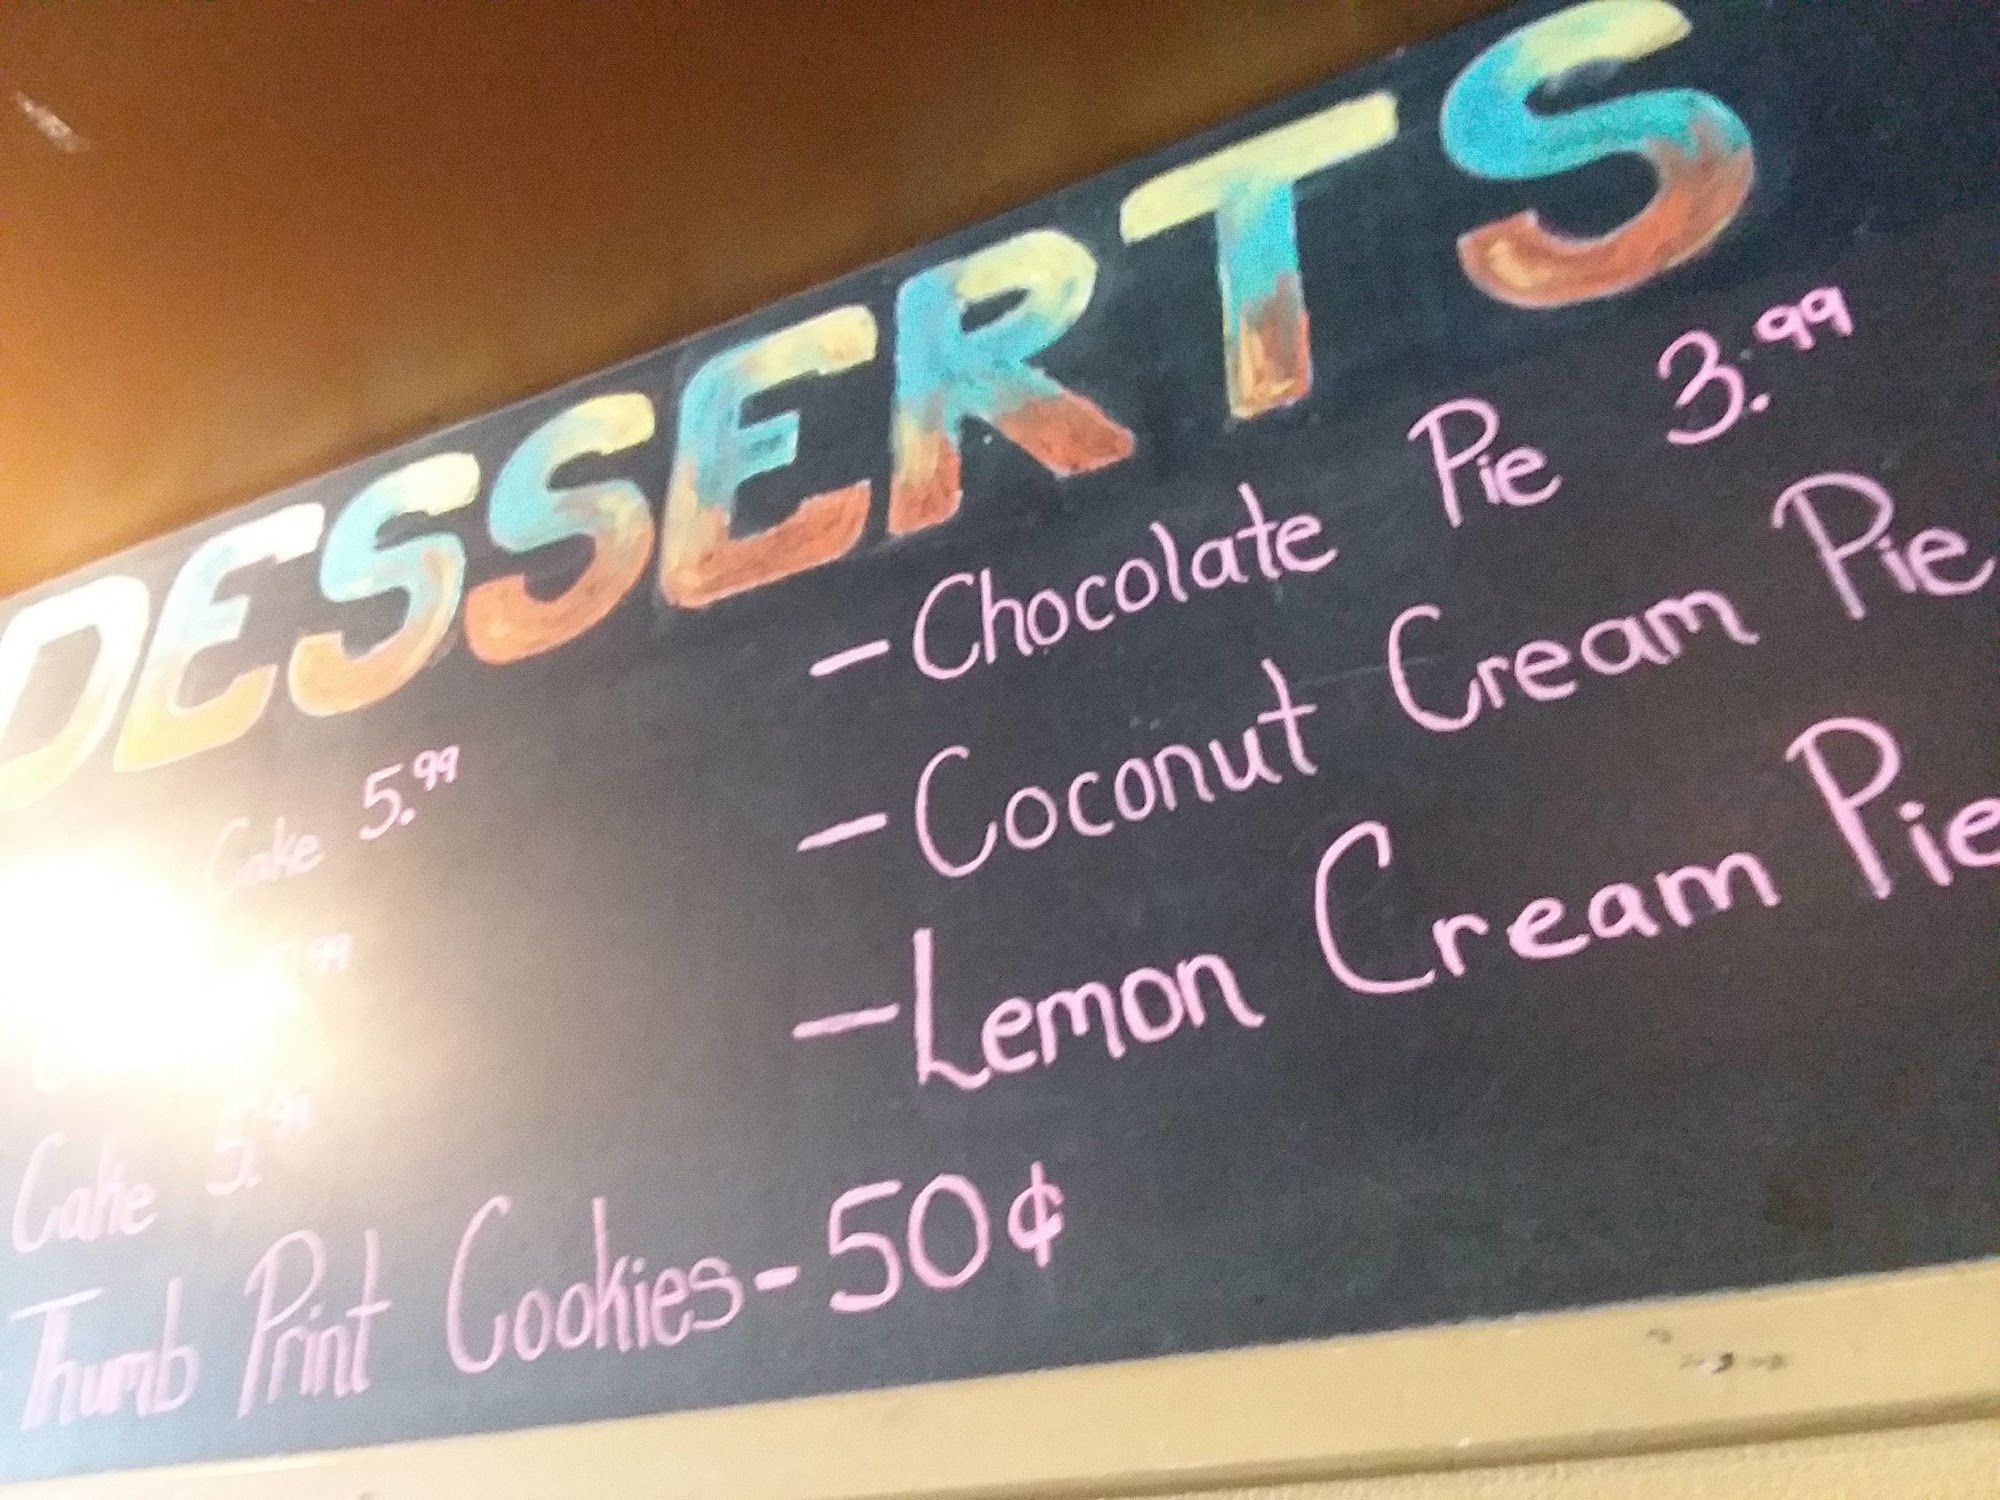 DESSERTS
Cake 5.99
.99
Cake 5.99
Thumb Print Cookies - 50¢
- Chocolate Pie 3.99
- Coconut Cream Pie
- Lemon Cream Pie